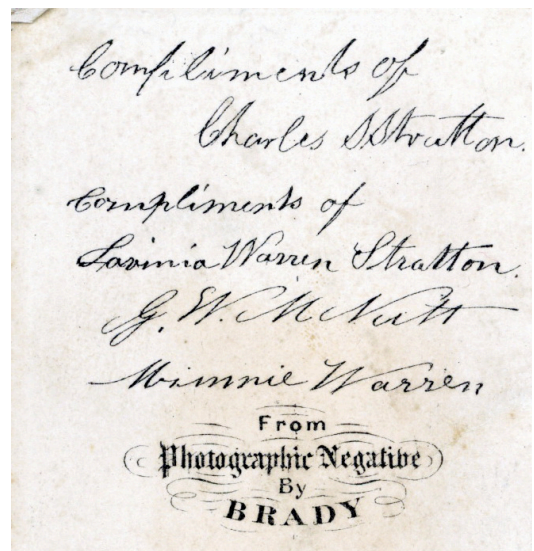 Compliments of
Charles S Stratton.
Compliments of
Lavinia Warren Stratton.
G. W. M Nutt
Minnie Warren
From
Photographic Negative
By
BRADY